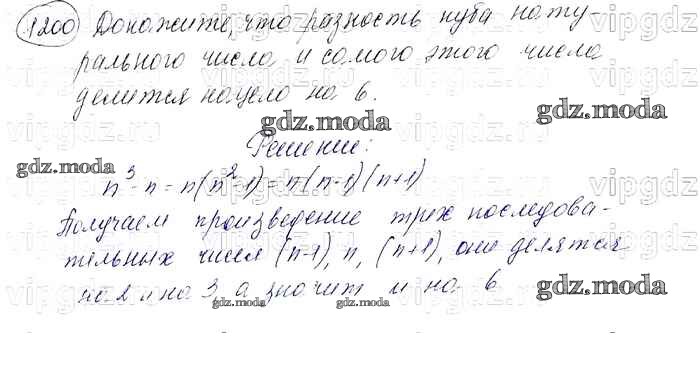 1200 Докажите, что разность куба нату-
рального числа и самого этого числа
делится нацело на 6.
gdz.moda
gdz.moda
Решение:
gdz.moda
n³-n = n(n²-1) = n(n-1)(n+1)
gdz.moda
Получаем произведение трех последова-
тельных чисел (n-1), n, (n+1), они делятся
на 2 и на 3, а значит и на 6.
gdz.moda
gdz.moda
gdz.moda